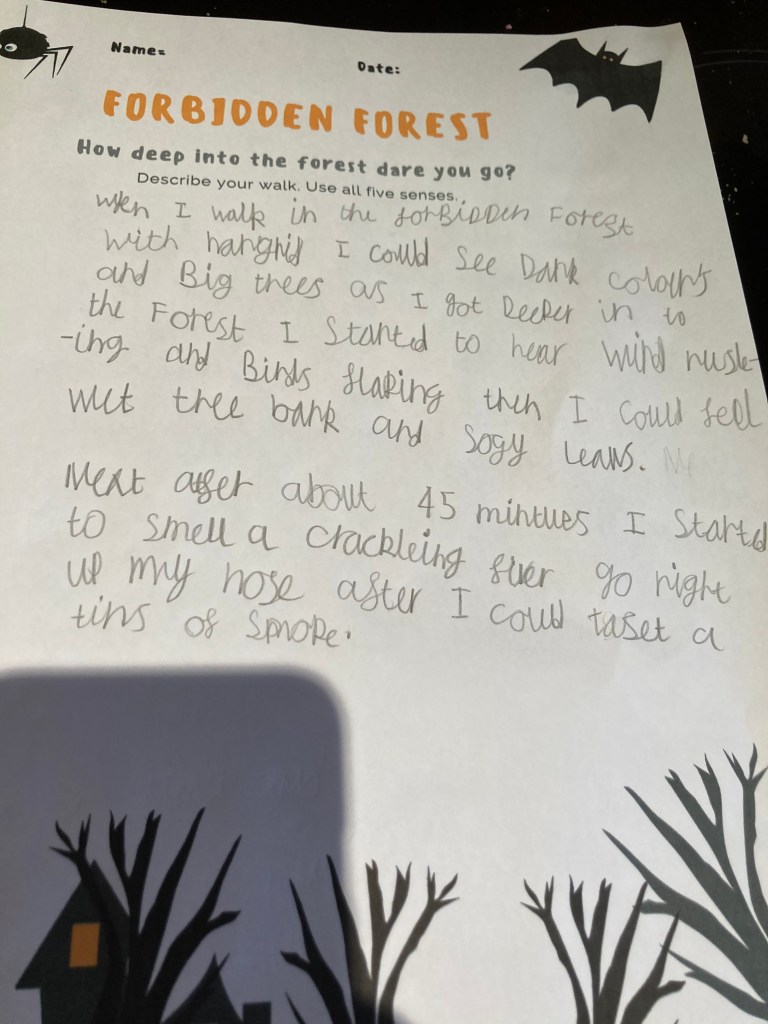 Name=
Date:
FORBIDDEN FOREST
How deep into the forest dare you go?
Describe your walk. Use all five senses.
when I walk in the forBIDDEn Forest
with hangrid I could see Dark colours
and Big trees as I got Deeper in to
the Forest I Started to hear wind rusle-
-ing and Birds flaping then I could feel
wet tree bark and sogy leavs.
Next after about 45 mintues I Started
to smell a crackleing fier go right
up my nose after I could taset a
tins of smoke.